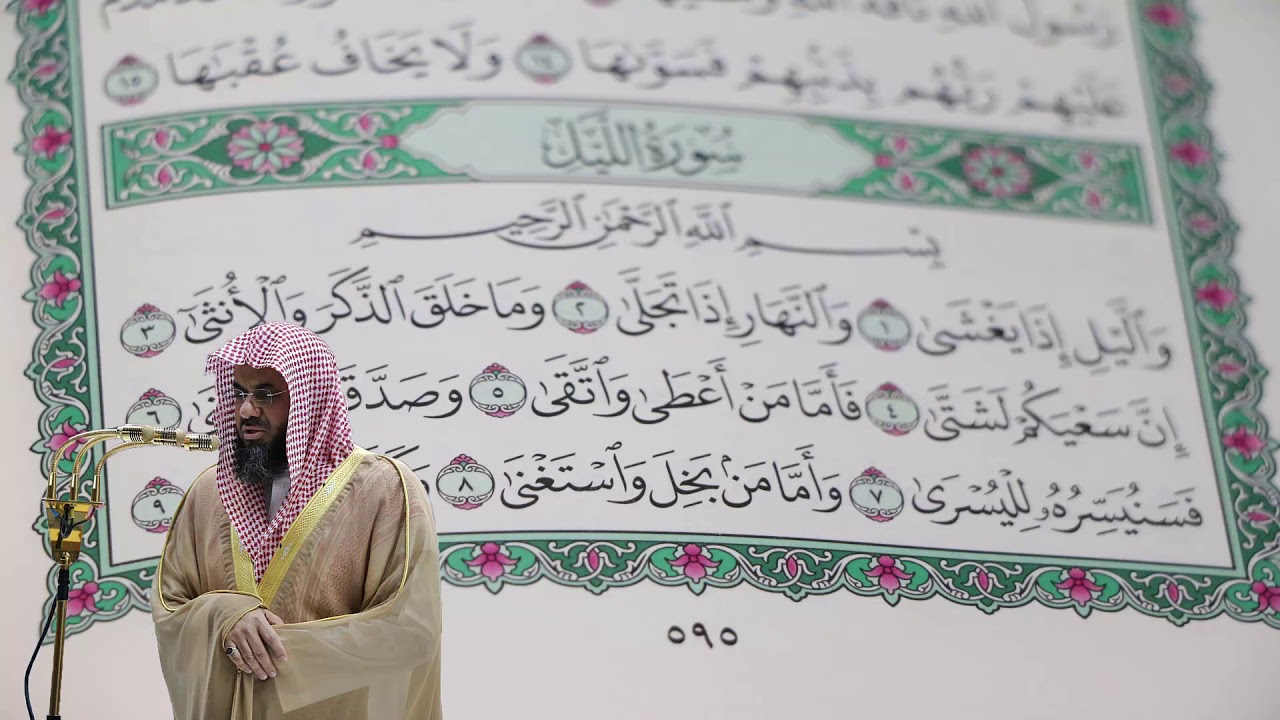 رَسُولُ ٱللَّهِ نَاقَةَ ٱللَّهِ وَسُقْيَٰهَا
عَلَيْهِمْ رَبُّهُم بِذَنۢبِهِمْ فَسَوَّىٰهَا ١٤ وَلَا يَخَافُ عُقْبَٰهَا ١٥
سُورَةُ اللَّيْلِ
بِسْمِ ٱللَّهِ ٱلرَّحْمَٰنِ ٱلرَّحِيمِ
وَٱلَّيْلِ إِذَا يَغْشَىٰ ١ وَٱلنَّهَارِ إِذَا تَجَلَّىٰ ٢ وَمَا خَلَقَ ٱلذَّكَرَ وَٱلْأُنثَىٰٓ ٣
إِنَّ سَعْيَكُمْ لَشَتَّىٰ ٤ فَأَمَّا مَنْ أَعْطَىٰ وَٱتَّقَىٰ ٥ وَصَدَّقَ ٦
فَسَنُيَسِّرُهُۥ لِلْيُسْرَىٰ ٧ وَأَمَّا مَنۢ بَخِلَ وَٱسْتَغْنَىٰ ٨ ٩
٥٩٥